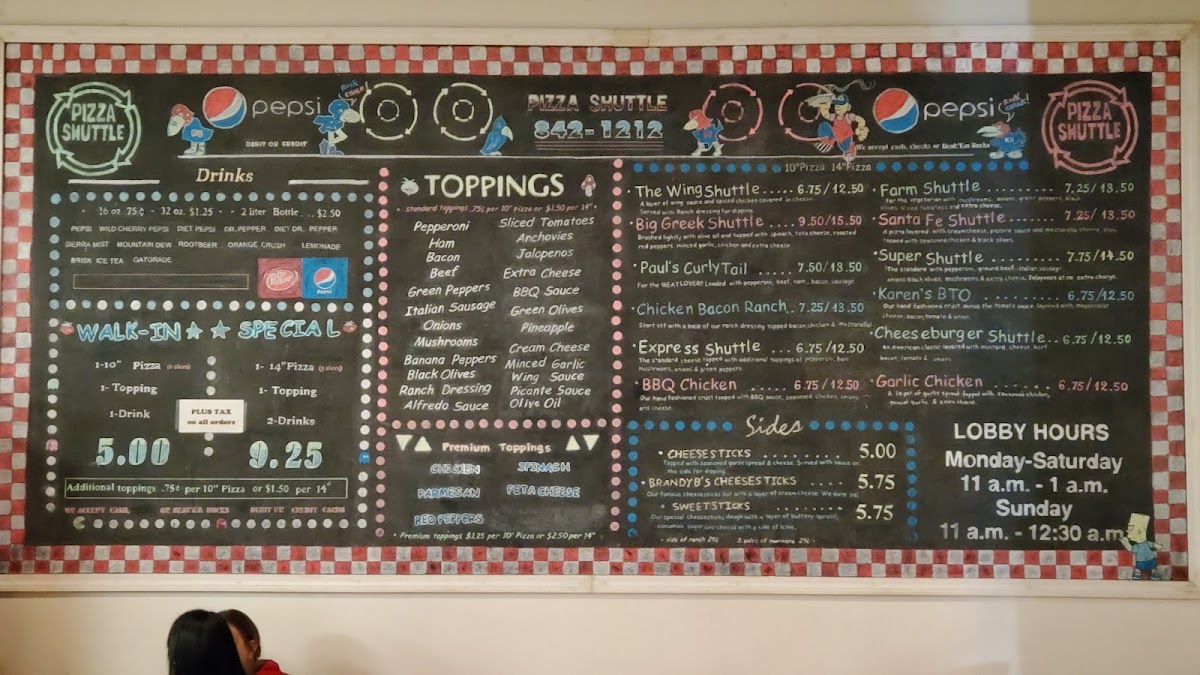 PIZZA SHUTTLE
pepsi
ROCK CHALK!
DEBIT OR CREDIT
PIZZA SHUTTLE
842-1212
pepsi
We accept cash, checks or Beat'Em Bucks
PIZZA SHUTTLE
Drinks
16 oz 75¢ - 32 oz. $1.25 - 2 liter Bottle ... $2.50
PEPSI WILD CHERRY PEPSI DIET PEPSI DR. PEPPER DIET DR. PEPPER
SIERRA MIST MOUNTAIN DEW ROOTBEER ORANGE CRUSH LEMONADE
BRISK ICE TEA GATORADE
Dr Pepper
pepsi
WALK-IN SPECIAL
1-10" Pizza (6 slices)
1- Topping
1-Drink
5.00
PLUS TAX
on all orders
1- 14" Pizza (8 slices)
1- Topping
2-Drinks
9.25
Additional toppings .75¢ per 10" Pizza or $1.50 per 14"
WE ACCEPT CASH, OR BEAT'EM BUCKS DEBIT OR CREDIT CARDS
TOPPINGS
• standard toppings .75¢ per 10" pizza or $1.50 per 14" •
Pepperoni
Ham
Bacon
Beef
Green Peppers
Italian Sausage
Onions
Mushrooms
Banana Peppers
Black Olives
Ranch Dressing
Alfredo Sauce
Sliced Tomatoes
Anchovies
Jalapenos
Extra Cheese
BBQ Sauce
Green Olives
Pineapple
Cream Cheese
Minced Garlic
Wing Sauce
Picante Sauce
Olive Oil
Premium Toppings
CHICKEN
PARMESAN
RED PEPPERS
SPINACH
FETA CHEESE
• Premium toppings $1.25 per 10" Pizza or $2.50 per 14"
10" Pizza 14" Pizza
• The Wing Shuttle ..... 6.75 / 12.50
A layer of wing sauce and spiced chicken covered in cheese.
Served with Ranch dressing for dipping.
• Big Greek Shuttle .... 9.50/15.50
Brushed lightly with olive oil and topped with spinach, feta cheese, roasted
red peppers, minced garlic, chicken and extra cheese.
• Paul's Curly Tail .... 7.50/13.50
For the MEAT LOVER!! Loaded with pepperoni, beef, ham, bacon, sausage
• Chicken Bacon Ranch.. 7.25/13.50
Start off with a base of our ranch dressing topped bacon chicken & mozzarella
• Express Shuttle .... 6.75 / 12.50
The standard cheese topped with additional toppings of pepperoni, ham
mushrooms, onions & green peppers.
• BBQ Chicken ..... 6.75 / 12.50
Our hand fashioned crust topped with BBQ sauce, seasoned chicken, onions,
and cheese.
• Farm Shuttle ......... 7.25 / 13.50
for the vegetarian with mushrooms, onions, green peppers, black
olives, sliced tomatoes and extra cheese.
• Santa Fe Shuttle ...... 7.25 / 13.50
A pizza layered with creamcheese, picante sauce and mozzarella cheese, then
topped with seasoned chicken & black olives.
• Super Shuttle ........ 7.75/14.50
"The standard with pepperoni, ground beef, italian sausage
onions black olives, mushrooms & extra cheese. Jalapenos at no extra charge!.
• Karen's BTO ........ 6.75/12.50
Our hand fashioned crust minus the tomato sauce, layered with mayonnaise
cheese, bacon, tomato & onion.
• Cheeseburger Shuttle.. 6.75 /12.50
An American classic layered with mustard, cheese, beef
bacon, tomato & onion.
• Garlic Chicken ...... 6.75 /12.50
A layer of garlic spread topped with seasoned chicken,
minced garlic & extra cheese.
Sides
• CHEESESTICKS ........ 5.00
Topped with seasoned garlic spread & cheese. Served with sauce on
the side for dipping.
• BRANDYB'S CHEESESTICKS .... 5.75
Our famous cheesesticks but with a layer of cream cheese. We dare ya!
• SWEETSTICKS ....... 5.75
Our special cheesesticks dough with a layer of buttery spread,
cinnamon sugar and cheese with a side of icing.
• side of ranch 25¢
LOBBY HOURS
Monday-Saturday
11 a.m. - 1 a.m.
Sunday
11 a.m. - 12:30 a.m